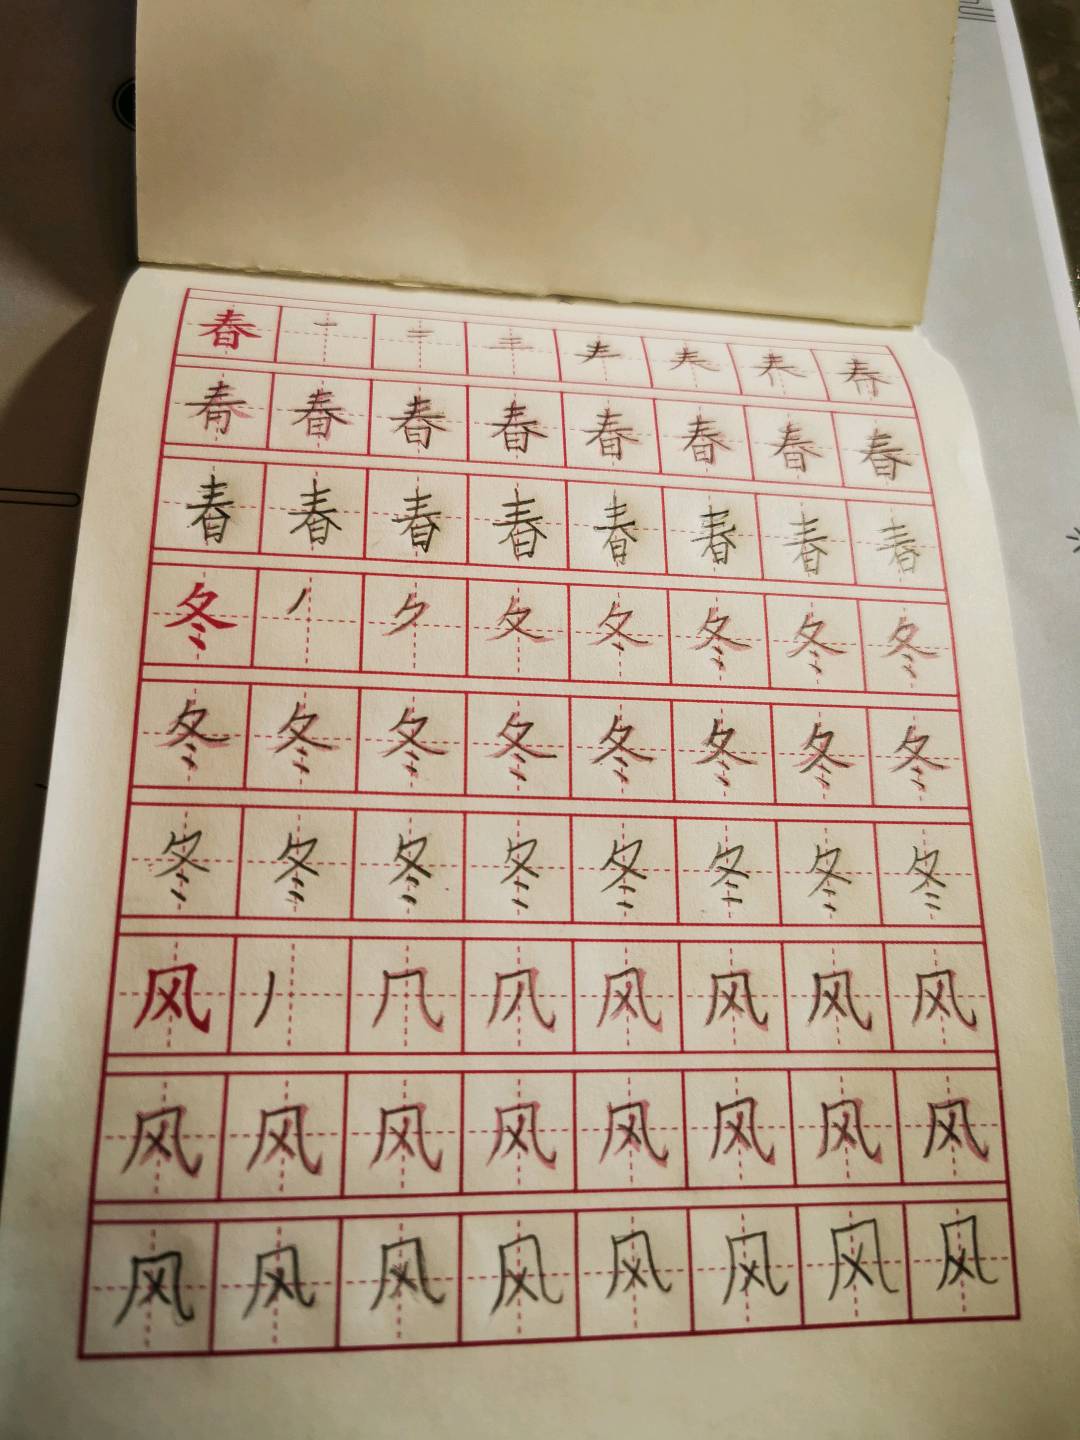 春 一 二 三 𡗗 𡗗
春 春 春 春 春 春 春
春 春 春 春 春 春 春 春
冬 丿 ク 夂 冬 冬 冬
冬 冬 冬 冬 冬 冬 冬 冬
冬 冬 冬 冬 冬 冬 冬 冬
风 丿 几 风 风 风 风
风 风 风 风 风 风 风 风
风 风 风 风 风 风 风 风